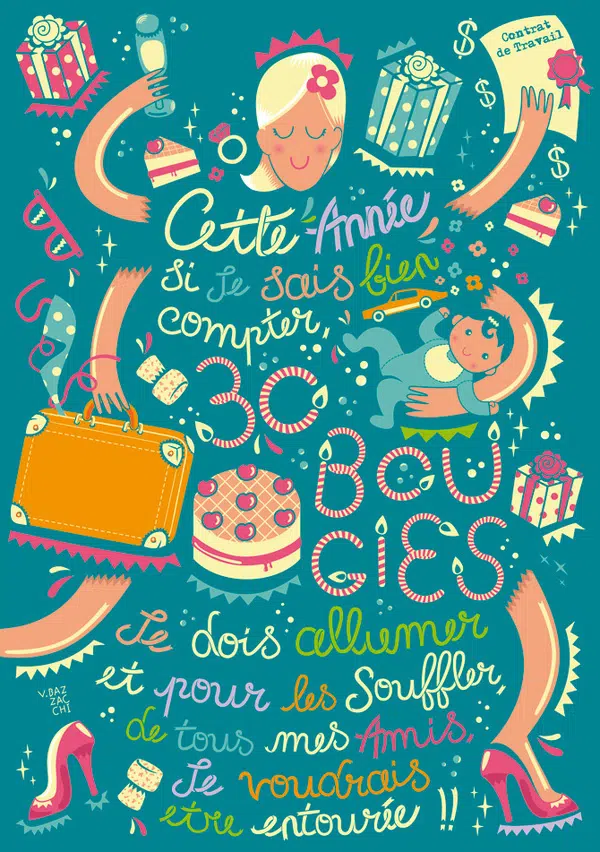 Contrat
de Travail
Cette Année
si Je sais bien
compter,
30
BOU
GIES
Je dois allumer
et pour les Souffler,
de tous mes Amis,
Je voudrais
etre entourée !!
V.BAZ
ZAC
CHI